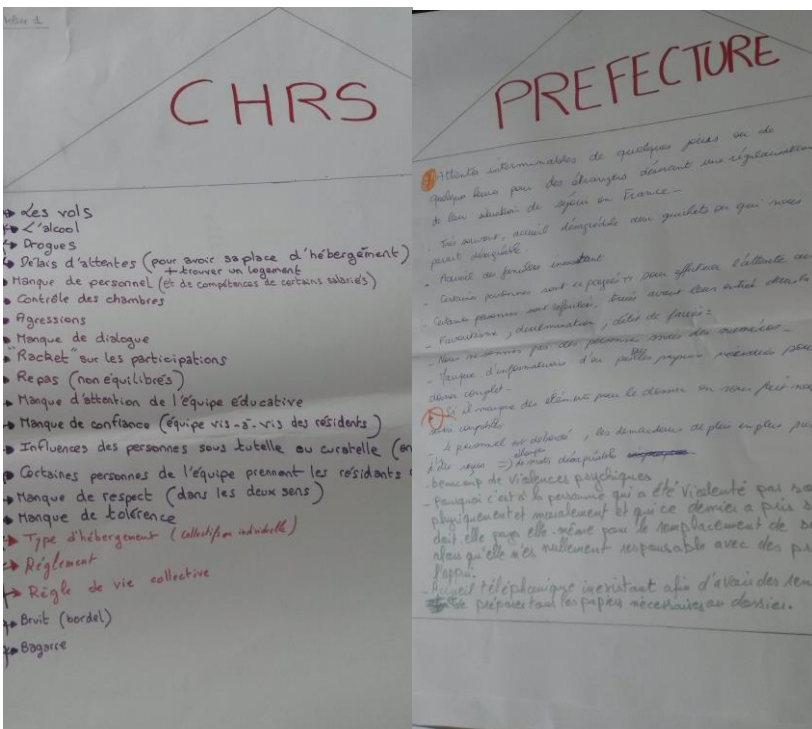 CHRS
Les vols
L'alcool
Drogues
Délais d'attentes (pour avoir sa place d'hébergement)
+ trouver un logement
Manque de personnel (et de compétences de certains salariés)
Contrôle des chambres
Agressions
Manque de dialogue
"Racket" sur les participations
Repas (non équilibrés)
Manque d'attention de l'équipe éducative
Manque de confiance (équipe vis-à-vis des résidents)
Influences des personnes sous tutelle ou curatelle
Certaines personnes de l'équipe prennent les résidents
Manque de respect (dans les deux sens)
Manque de tolérence
Type d'hébergement (collectif ou individuelle)
Réglement
Règle de vie collective
Bruit (bordel)
Bagarre
PREFECTURE
Attentes interminables de quelques jours ou de
quelques heures pour des étrangers désirant une régularisation
de leur situation de séjour en France -
- Très souvent, accueil désagréable aux guichets ce qui nous
paraît désagréable
- Accueil des familles inexistant
- Certaines personnes sont pour effectuer l'attente
- Certaines personnes sont avant leur entrée
- Favoritisme, discrimination, délit de faciès :
- Nous ne sommes pas des personnes mais des numéros -
- Manque d'informations d'où papiers nécessaires pour
dossier complet -
Si il manque des éléments pour le dossier on nous
- le personnel est débordé, les demandeurs de plus en plus
d'être reçus => échanges de mots désagréable
- beaucoup de violences psychiques
- Pourquoi c'est à la personne qui a été violenté par
physiquement et moralement et que ce dernier a pris
doit elle payer elle-même pour le remplacement de
alors qu'elle n'es nullement responsable avec des
l'appui.
- Accueil téléphonique inexistant afin d'avoir des
de préparer tous les papiers nécessaires au dossier.